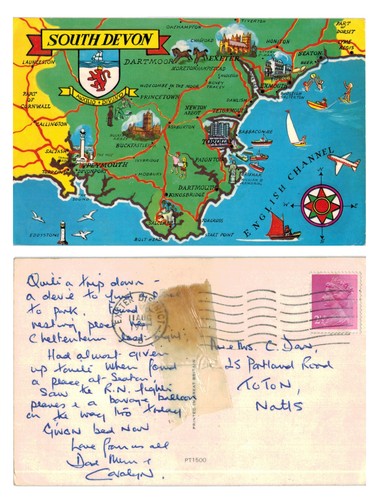 SOUTH DEVON
LAUNCESTON
TIVERTON
HONITON
PART OF DORSET
LYME REGIS
SEATON
EXETER
DARTMOOR
MORETONHAMPSTEAD
EXMOUTH
PART OF CORNWALL
WIDECOMBE IN THE MOOR
PRINCETOWN
CALLINGTON
NEWTON ABBOT
ASHBURTON
BUCKFAST
TORQUAY
BABBACOMBE
SALTASH
PLYMOUTH
PAIGNTON
BRIXHAM
DARTMOUTH
KINGSBRIDGE
SALCOMBE
START POINT
BOLT HEAD
EDDYSTONE
ENGLISH CHANNEL
Quite a trip down
a devil to find a place
to park, found
resting place near
Cheltenham last night.
Had almost given
up when found
a place at Seaton.
Saw the R.N. flights
planes & a barrage balloon
on the way thro today
Given bed now
Love from us all
Dad Mum &
Carolyn.
EXETER DISTRICT
11 AUG
2½P
Mr & Mrs C. Daw,
25 Portland Road
TOTON,
Notts
PT7500